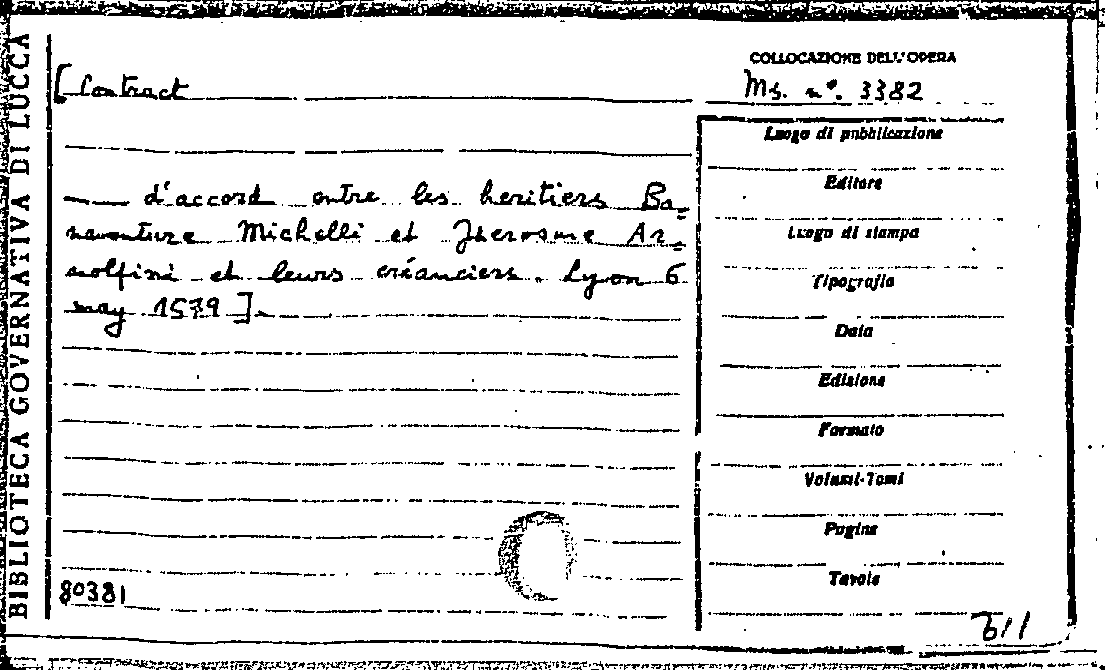 BIBLIOTECA GOVERNATIVA DI LUCCA
[Contract
COLLOCAZIONE DELL'OPERA
Ms. n°. 3382
—— d'accord entre les heritiers Bo=
naventure Michelli et Jherosme Ar=
nolfini et leurs créanciers. Lyon 6
may 1579].
Luogo di pubblicazione
Editore
Luogo di stampa
Tipografia
Data
Edizione
Formato
Volumi-Tomi
Pagine
Tavole
80381